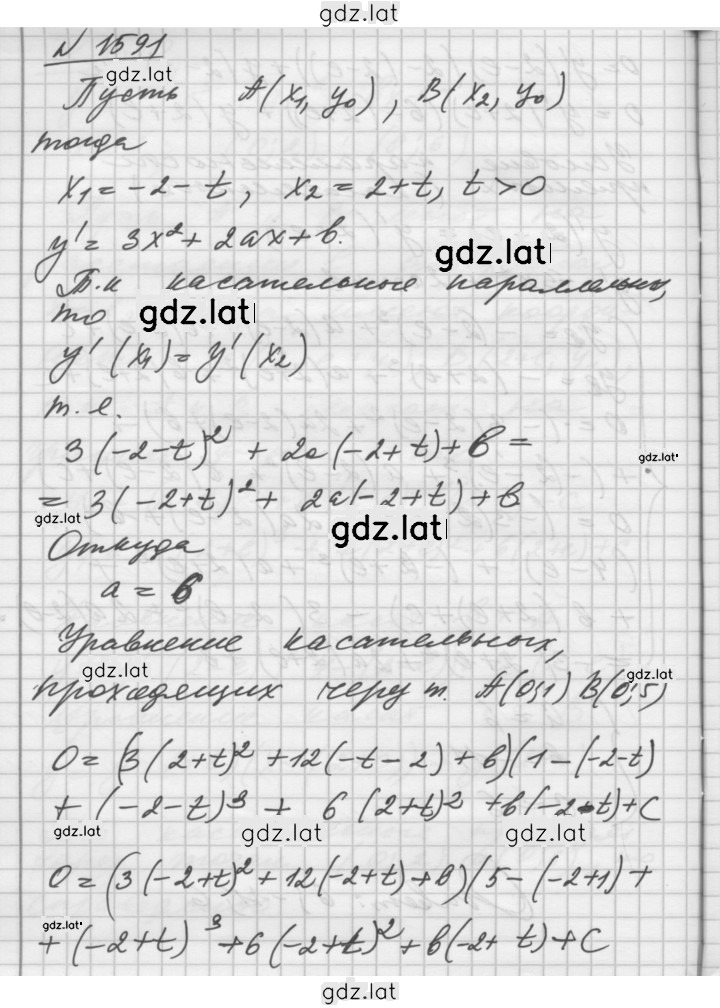 gdz.lat
N 1591
gdz.lat
Пусть A(x₁, y₀), B(x₂, y₀)
тогда
x₁ = -2 - t, x₂ = 2+t, t > 0
y' = 3x² + 2ax + b.
gdz.lat
Т.к касательные параллельны,
то
gdz.lat
y'(x₁) = y'(x₂)
т.е.
3(-2-t)² + 2a(-2+t) + b =
gdz.lat
= 3(-2+t)² + 2a(-2+t) + b
gdz.lat
gdz.lat
Откуда
a = 6
Уравнение касательных,
gdz.lat
gdz.lat
проходящих через т. A(0;1) B(0;5)
0 = (3(2+t)² + 12(-t-2) + b)(1-(-2-t)
+ (-2-t)³ + 6(2+t)² + b(-2-t) + C
gdz.lat
gdz.lat
gdz.lat
0 = (3(-2+t)² + 12(-2+t) + b)(5-(-2+1) +
gdz.lat
+ (-2+t)³ + 6(-2+t)² + b(-2+ t) + C
gdz.lat